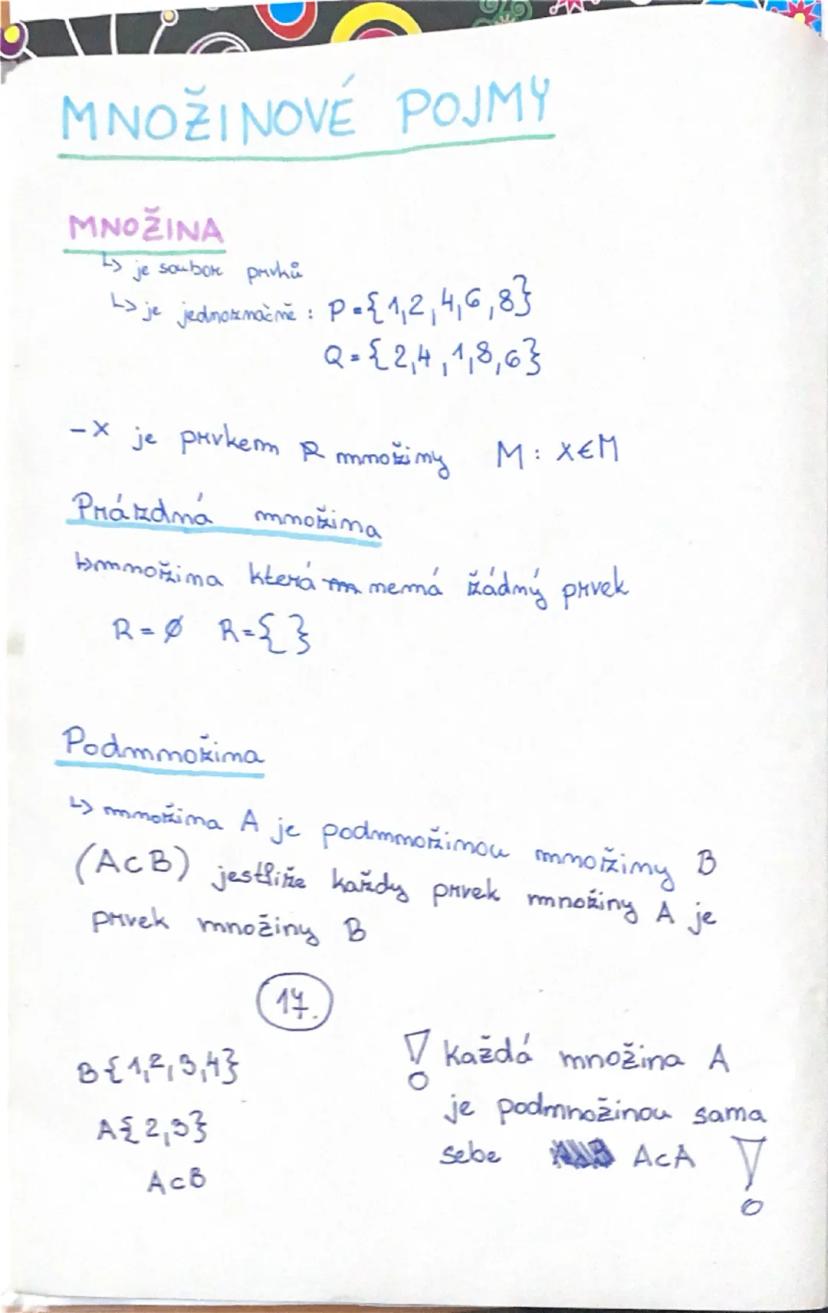 MNOŽINOVÉ POJMY
MNOŽINA
↳ je soubor prvků
↳ je jednoznačně : P = {1,2,4,6,8}
Q = {2,4,1,8,6}
- X je prvkem množiny M : X∈M
Prázdná množina
↳ množina která nemá žádný prvek
R = Ø R = { }
Podmnožina
↳ množina A je podmnožinou množiny B
(A⊂B) jestliže každy prvek množiny A je
prvek množiny B
17.
B{1,2,3,4}
A{2,3}
A⊂B
! Každá množina A
je podmnožinou sama
sebe A⊂A !